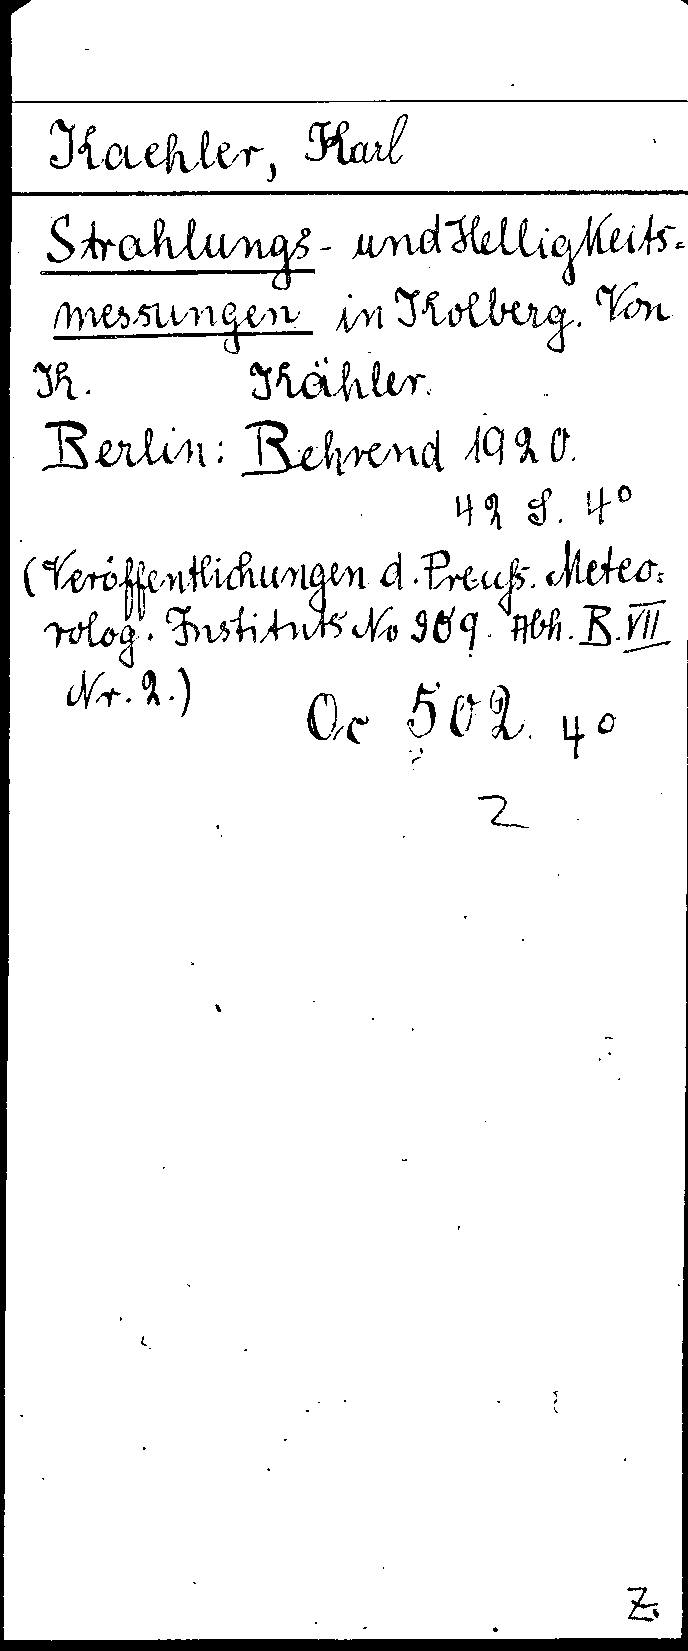 Kaehler, Karl
Strahlungs- und Helligkeits=
messungen in Kolberg. Von
K. Kähler.
Berlin: Behrend 1920.
42 S. 4°
(Veröffentlichungen d. Preuß. Meteo=
rolog. Instituts No 309. Abh. B. VII
Nr. 2.)
Oc 502. 4°
2
Z.